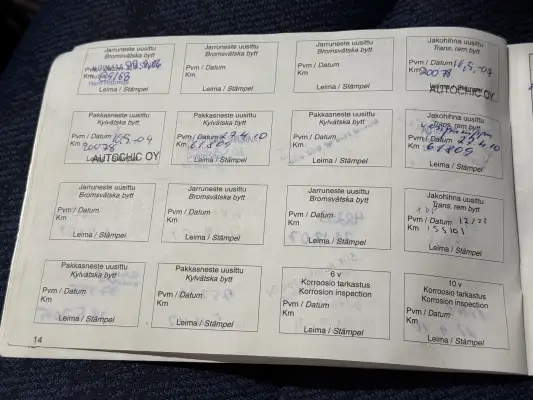 Jarruneste uusittu
Bromsvätska bytt
Pvm / Datum
Km
Leima / Stämpel
Jarruneste uusittu
Bromsvätska bytt
Pvm / Datum
Km
Leima / Stämpel
Jarruneste uusittu
Bromsvätska bytt
Pvm / Datum
Km
Leima / Stämpel
Jakohihna uusittu
Trans. rem bytt
Pvm / Datum 16,5,-04
Km 20078
AUTOCHIC OY
Pakkasneste uusittu
Kylvätska bytt
Pvm / Datum
Km
AUTOCHIC OY
Pakkasneste uusittu
Kylvätska bytt
Pvm / Datum 27.4.10
Km 61805
Leima / Stämpel
Pakkasneste uusittu
Kylvätska bytt
Pvm / Datum
Km
Leima / Stämpel
Jakohihna uusittu
Trans. rem bytt
Pvm / Datum 27.4.10
Km 61805
Leima / Stämpel
Jarruneste uusittu
Bromsvätska bytt
Pvm / Datum
Km
Leima / Stämpel
Jarruneste uusittu
Bromsvätska bytt
Pvm / Datum
Km
Leima / Stämpel
Jarruneste uusittu
Bromsvätska bytt
Pvm / Datum
Km
Leima / Stämpel
Jakohihna uusittu
Trans. rem bytt
Pvm / Datum
Km 155101
Leima / Stämpel
Pakkasneste uusittu
Kylvätska bytt
Pvm / Datum
Km
Leima / Stämpel
Pakkasneste uusittu
Kylvätska bytt
Pvm / Datum
Km
Leima / Stämpel
6 v
Korroosio tarkastus
Korrosion inspection
Pvm / Datum
Km
Leima / Stämpel
10 v
Korroosio tarkastus
Korrosion inspection
Pvm / Datum
Km
Leima / Stämpel
14